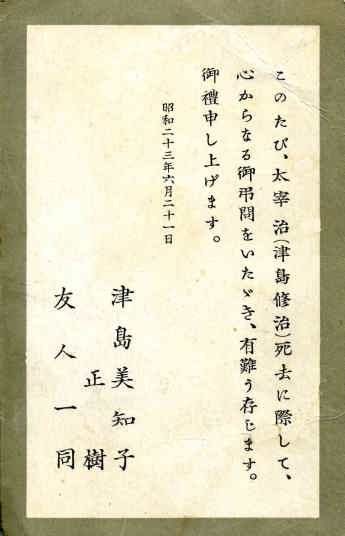 このたび、太宰 治(津島修治)死去に際して、
心からなる御弔問をいたゞき、有難う存じます。
御禮申し上げます。
昭和二十三年六月二十一日
津島美知子
正樹
友人一同